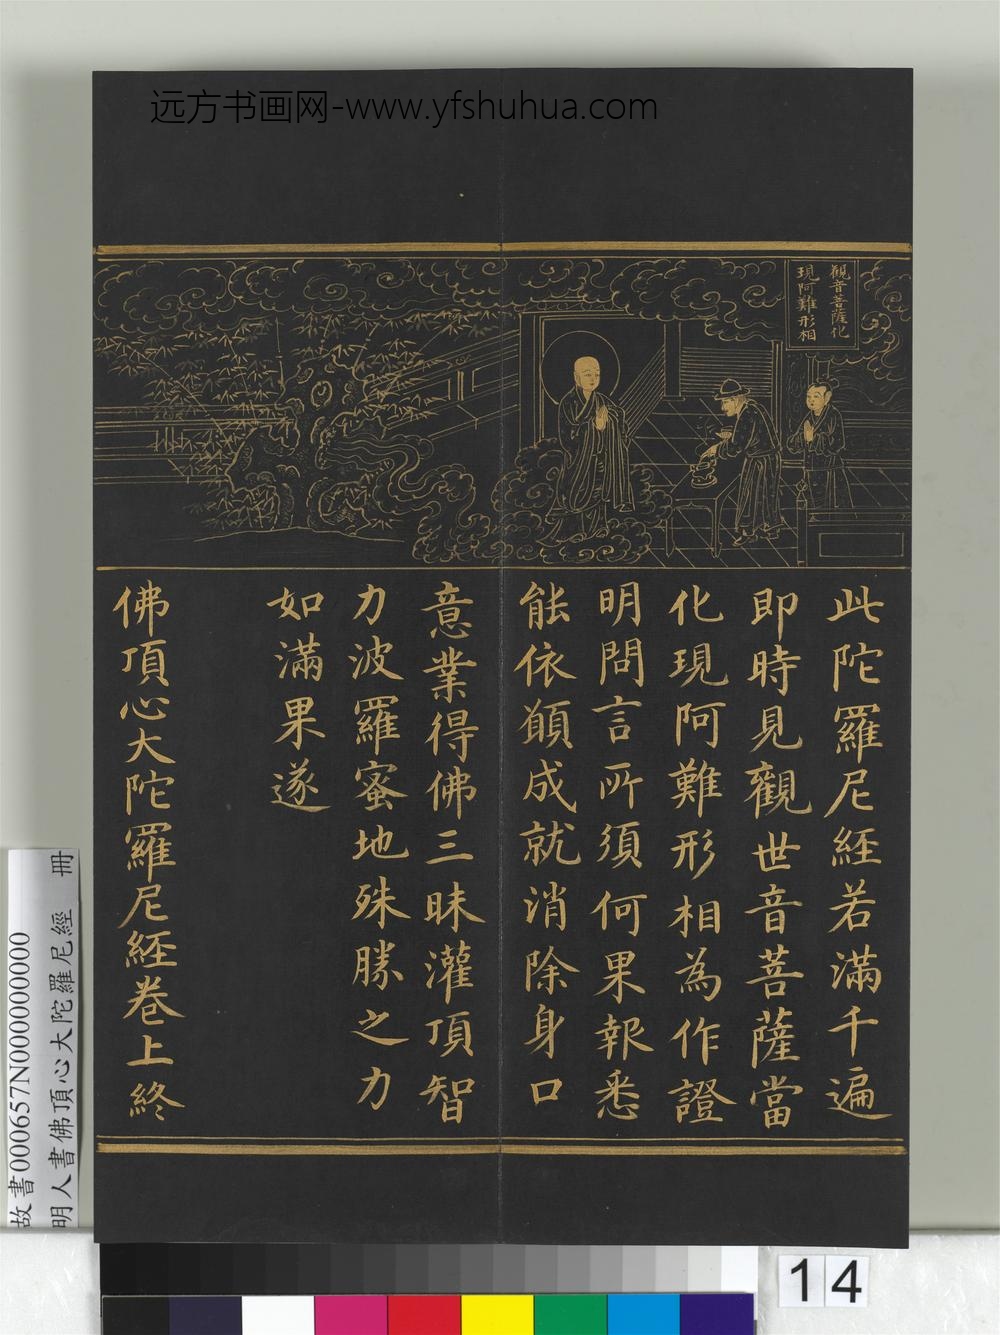 远方书画网-www.yfshuhua.com
觀音菩薩化
現阿難形相
此陀羅尼經若滿千遍
即時見觀世音菩薩當
化現阿難形相為作證
明問言所須何果報悉
能依願成就消除身口
意業得佛三昧灌頂智
力波羅蜜地殊勝之力
如滿果遂
佛頂心大陀羅尼經卷上終
故書000657N000000000
明人書佛頂心大陀羅尼經 冊
14